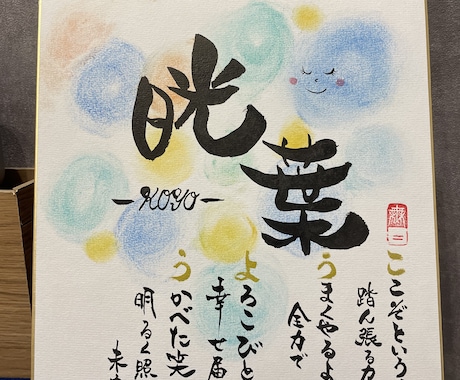 晄葉
-KOYO-
こここぞという
踏ん張る力
うまくやるよ
全力で
よろこびと
幸せ届
うかべた笑
明るく照
未来